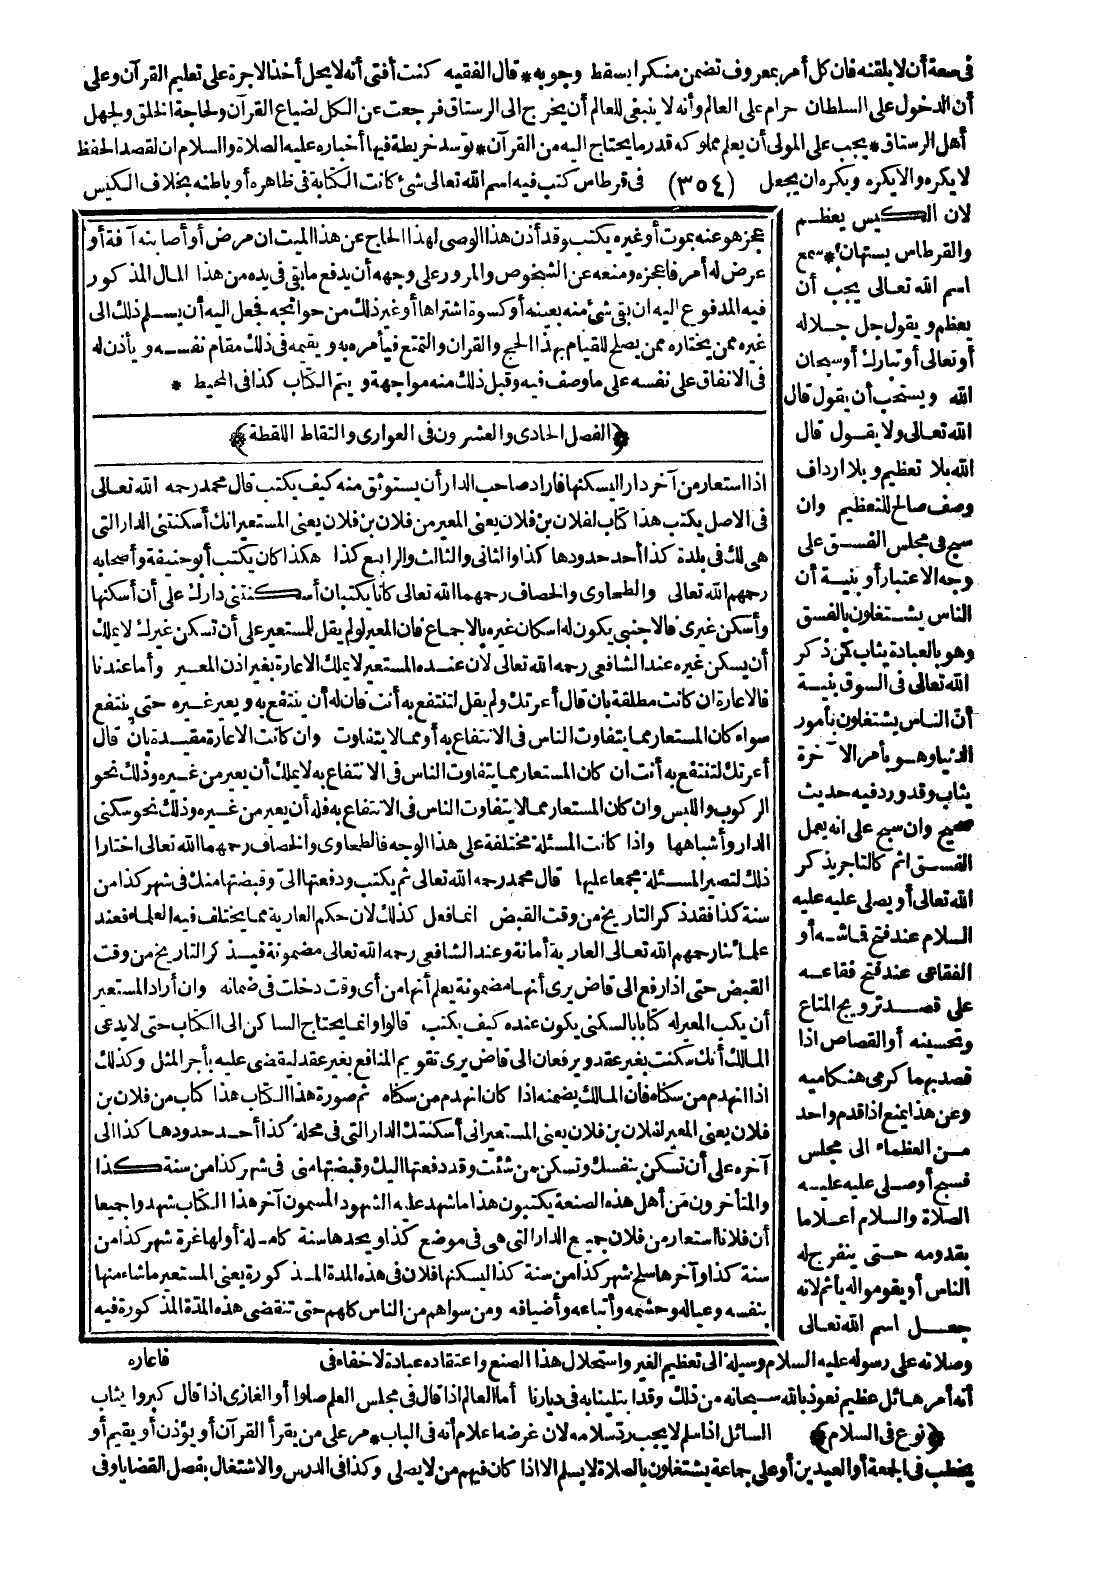 فى سعة أن لا يلقنه فان كل أمر بمعروف تضمن منكرا يسقط وجوبه * قال الفقيه كنت أفتى أنه لا يحل أخذ الاجرة على تعليم القرآن وعلى
أن الدخول على السلطان حرام على العالم وأنه لا ينبغى للعالم أن يخرج الى الرستاق فرجعت عن الكل لضياع القرآن ولحاجة الخلق ولجهل
أهل الرستاق * يجب على المولى أن يعلم مملوكه قدر ما يحتاج اليه من القرآن * توسد خريطة فيها أخباره عليه الصلاة والسلام ان لقصد الحفظ
لا يكره والا يكره ويكره ان يجعل (٣٥٤) فى قرطاس كتب فيه اسم الله تعالى شئ كانت الكتابة فى ظاهره أو باطنه بخلاف الكيس
لان الكيس يعظم
والقرطاس يستهان * سمع
اسم الله تعالى يجب أن
يعظم ويقول جل جلاله
أو تعالى أو تبارك أو سبحان
الله ويستحب أن يقول قال
الله تعالى ولا يقول قال
الله بلا تعظيم وبلا ارداف
وصف صالح للتعظيم وان
سبح فى مجلس الفسق على
وجه الاعتبار أو بنية أن
الناس يشتغلون بالفسق
وهو بالعبادة يثاب كمن ذكر
الله تعالى فى السوق بنية
أن الناس يشتغلون بأمور
الدنيا وهو بأمر الآخرة
يثاب وقد ورد فيه حديث
صحيح وان سبح على انه يعمل
الفسق اثم كالتاجر يذكر
الله تعالى أو يصلى عليه عليه
السلام عند فتح قماشه أو
الفقاعى عند فتح فقاعه
على قصد ترويج المتاع
وتحسينه أو القصاص اذا
قصد بهما كرمى هنكاميه
وعن هذا يمنع اذا قدم واحد
من العظماء الى مجلس
فسبح أو صلى عليه عليه
الصلاة والسلام اعلاما
بقدومه حتى ينفرج له
الناس أو يقوموا له يأثم لانه
جعل اسم الله تعالى
عجز هو عنه بموت أو غيره يكتب وقد أذن هذا الوصى لهذا الحاج عن هذا الميت ان مرض أو أصابته آفة أو
عرض له أمر فاعجزه ومنعه عن الشخوص والمرور على وجهه أن يدفع ما بقى فى يده من هذا المال المذكور
فيه المدفوع اليه ان بقى شئ منه بعينه أو كسوة اشتراها أو غير ذلك من حوائجه فجعل اليه أن يسلم ذلك الى
غيره ممن يختاره ممن يصلح للقيام بهذا الحج والقران والتمتع فيأمره به ويقيمه فى ذلك مقام نفسه ويأذن له
فى الانفاق على نفسه على ما وصف فيه وقبل ذلك منه مواجهة ويتم الكتاب كذا فى المحيط *
﴿الفصل الحادى والعشرون فى العوارى والتقاط اللقطة﴾
اذا استعار من آخر دارا ليسكنها فاراد صاحب الدار أن يستوثق منه كيف يكتب قال محمد رحمه الله تعالى
فى الاصل يكتب هذا كتاب لفلان بن فلان يعنى المعير من فلان بن فلان يعنى المستعير انك أسكنتنى الدار التى
هى لك فى بلدة كذا أحد حدودها كذا والثانى والثالث والرابع كذا هكذا كان يكتب أبو حنيفة وأصحابه
رحمهم الله تعالى والطحاوى والخصاف رحمهما الله تعالى كانا يكتبان أسكنتنى دارك على أن أسكنها
وأسكن غيرى فالاجنبى يكون له اسكان غيره بالاجماع فان المعير لو لم يقل للمستعير على أن تسكن غيرك لا يملك
أن يسكن غيره عند الشافعى رحمه الله تعالى لان عنده المستعير لا يملك الاعارة بغير اذن المعير وأما عندنا
فالاعارة ان كانت مطلقة بان قال أعرتك ولم يقل لتنتفع به أنت فان له أن ينتفع به ويعير غيره حتى ينتفع
سواء كان المستعار مما يتفاوت الناس فى الانتفاع به أو مما لا يتفاوت وان كانت الاعارة مقيدة بان قال
أعرتك لتنتفع به أنت ان كان المستعار مما يتفاوت الناس فى الانتفاع به لا يملك أن يعير من غيره وذلك نحو
الركوب واللبس وان كان المستعار مما لا يتفاوت الناس فى الانتفاع به فله أن يعير من غيره وذلك نحو سكنى
الدار وأشباهها واذا كانت المسئلة مختلفة على هذا الوجه فالطحاوى والخصاف رحمهما الله تعالى اختارا
ذلك لتصير المسئلة مجمعا عليها قال محمد رحمه الله تعالى ثم يكتب ودفعتها الى وقبضتها منك فى شهر كذا من
سنة كذا فقد ذكر التاريخ من وقت القبض انما فعل كذلك لان حكم العارية مما يختلف فيه العلماء فعند
علمائنا رحمهم الله تعالى العارية أمانة وعند الشافعى رحمه الله تعالى مضمونة فيذكر التاريخ من وقت
القبض حتى اذا رفع الى قاض يرى أنها مضمونة يعلم أنها من أى وقت دخلت فى ضمانه وان أراد المستعير
أن يكتب المعير له كتابا بالسكنى يكون عنده كيف يكتب قالوا وانما يحتاج الساكن الى الكتاب حتى لا يدعى
المالك أنك سكنت بغير عقد ويرفعان الى قاض يرى تقويم المنافع بغير عقد ليقضى عليه بأجر المثل وكذلك
اذا انهدم من سكناه فان المالك يضمنه اذا كان انهدم من سكناه ثم صورة هذا الكتاب هذا كتاب من فلان بن
فلان يعنى المعير لفلان بن فلان يعنى المستعير انى أسكنتك الدار التى فى محلة كذا أحد حدودها كذا الى
آخره على أن تسكن بنفسك وتسكن من شئت وقد دفعتها اليك وقبضتها منى فى شهر كذا من سنة كذا
والمتأخرون من أهل هذه الصنعة يكتبون هذا ما شهد عليه الشهود المسمون آخر هذا الكتاب شهدوا جميعا
أن فلانا استعار من فلان جميع الدار التى هى فى موضع كذا ويحدها سنة كاملة أولها غرة شهر كذا من
سنة كذا وآخرها سلخ شهر كذا من سنة كذا ليسكنها فلان فى هذه المدة المذكورة يعنى المستعير ما شاء منها
بنفسه وعياله وحشمه وأتباعه وأضيافه ومن سواهم من الناس كلهم حتى تنقضى هذه المدة المذكورة فيه
فاعاره
وصلاته على رسوله عليه السلام وسيلة الى تعظيم الغير واستحلال هذا الصنع واعتقاده عبادة لا خفاء فى
أنه أمر هائل عظيم نعوذ بالله سبحانه من ذلك وقد ابتلينا به فى ديارنا أما العالم اذا قال فى مجلس العلم صلوا أو الغازى اذا قال كبروا يثاب
﴿نوع فى السلام﴾ السائل اذا سلم لا يجب رد سلامه لان غرضه اعلام أنه فى الباب * مر على من يقرأ القرآن أو يؤذن أو يقيم أو
يخطب فى الجمعة أو العيدين أو على جماعة يشتغلون بالصلاة لا يسلم الا اذا كان فيهم من لا يصلى وكذا فى الدرس والاشتغال بفصل القضايا وفى